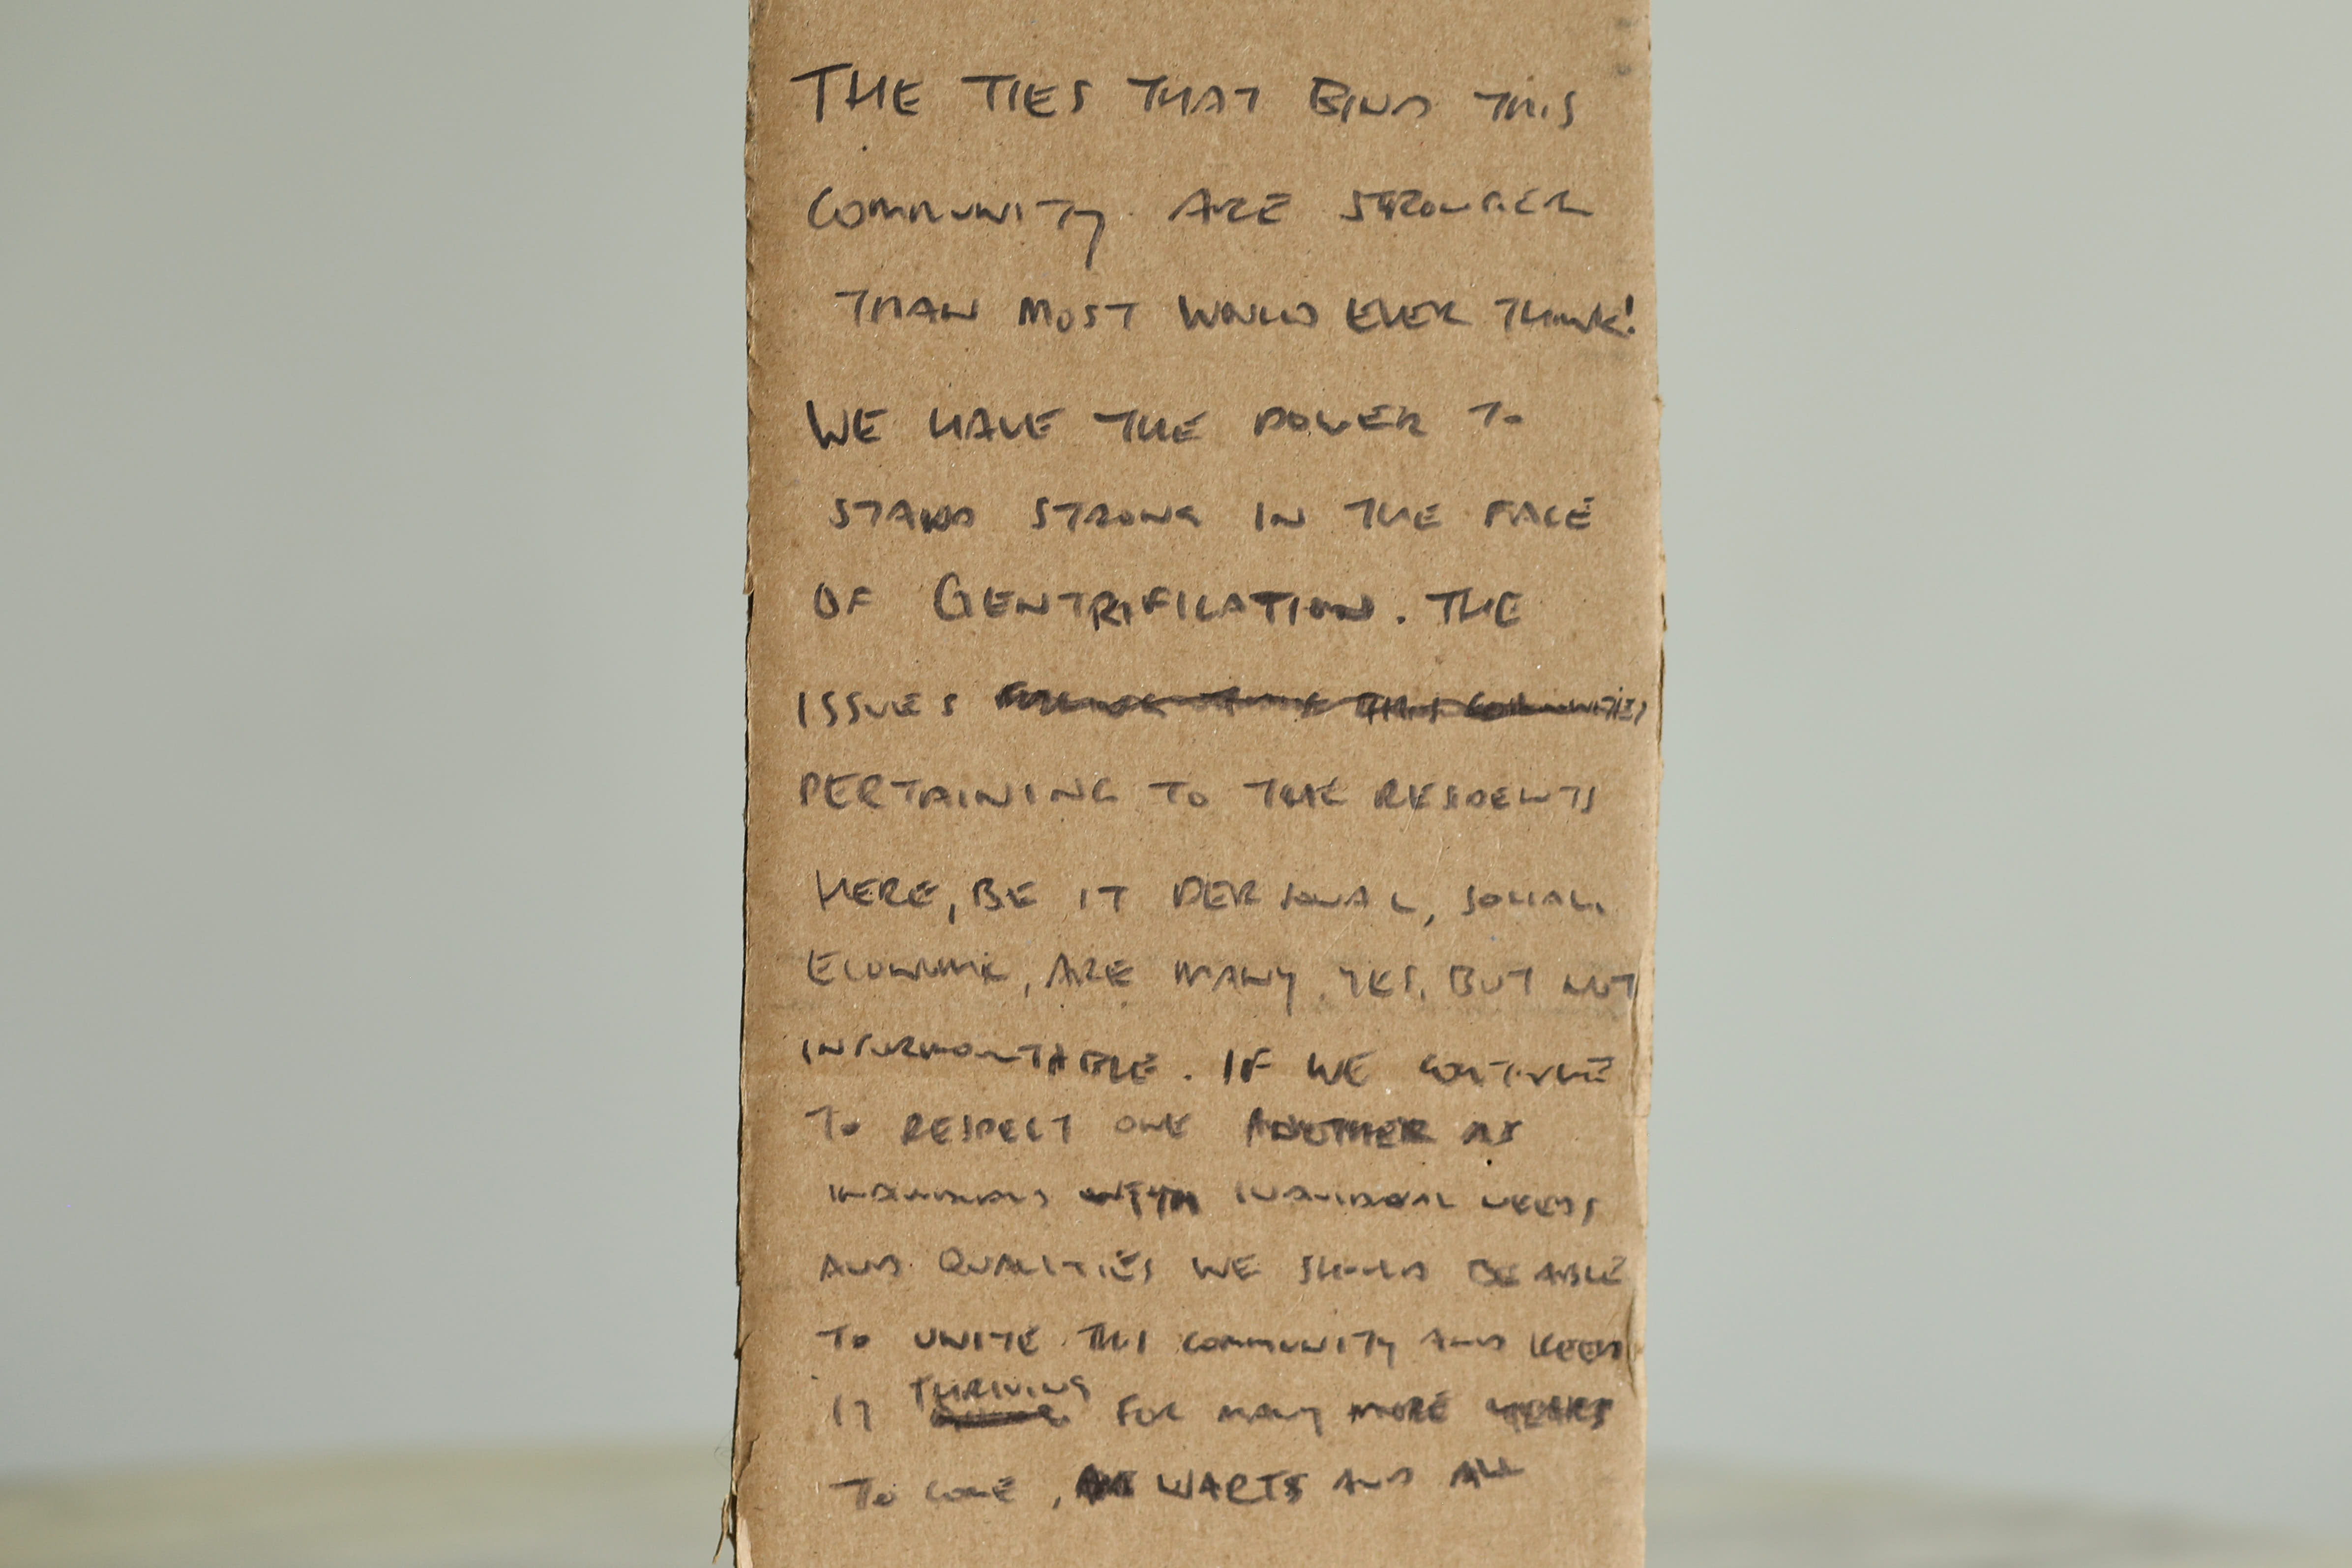 THE TIES THAT BIND THIS
COMMUNITY ARE STRONGER
THAN MOST WOULD EVER THINK!
WE HAVE THE POWER TO
STAND STRONG IN THE FACE
OF GENTRIFICATION. THE
ISSUES
PERTAINING TO THE RESIDENTS
HERE, BE IT PERSONAL, SOCIAL,
ECONOMIC, ARE MANY YES, BUT NOT
INSURMOUNTABLE. IF WE CONTINUE
TO RESPECT ONE ANOTHER AS
INDIVIDUALS WITH INDIVIDUAL NEEDS
AND QUALITIES WE SHOULD BE ABLE
TO UNITE THIS COMMUNITY AND KEEP
IT THRIVING FOR MANY MORE YEARS
TO COME, WARTS AND ALL